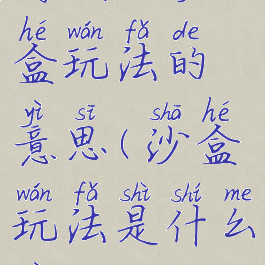 hé wán fǎ de
盒玩法的
yì sī shā hé
意思(沙盒
wán fǎ shì shí me
玩法是什么